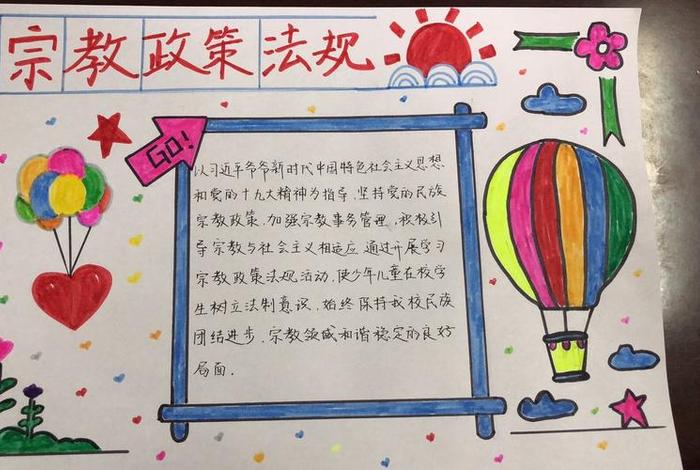 宗教政策法规
GO!
以习近平爷爷新时代中国特色社会主义思想
和党的十九大精神为指导,坚持党的民族
宗教政策,加强宗教事务管理,积极引
导宗教与社会主义相适应,通过开展学习
宗教政策法规活动,使少年儿童在校学
生树立法制意识,始终保持我校民族
团结进步,宗教领域和谐稳定的良好
局面.